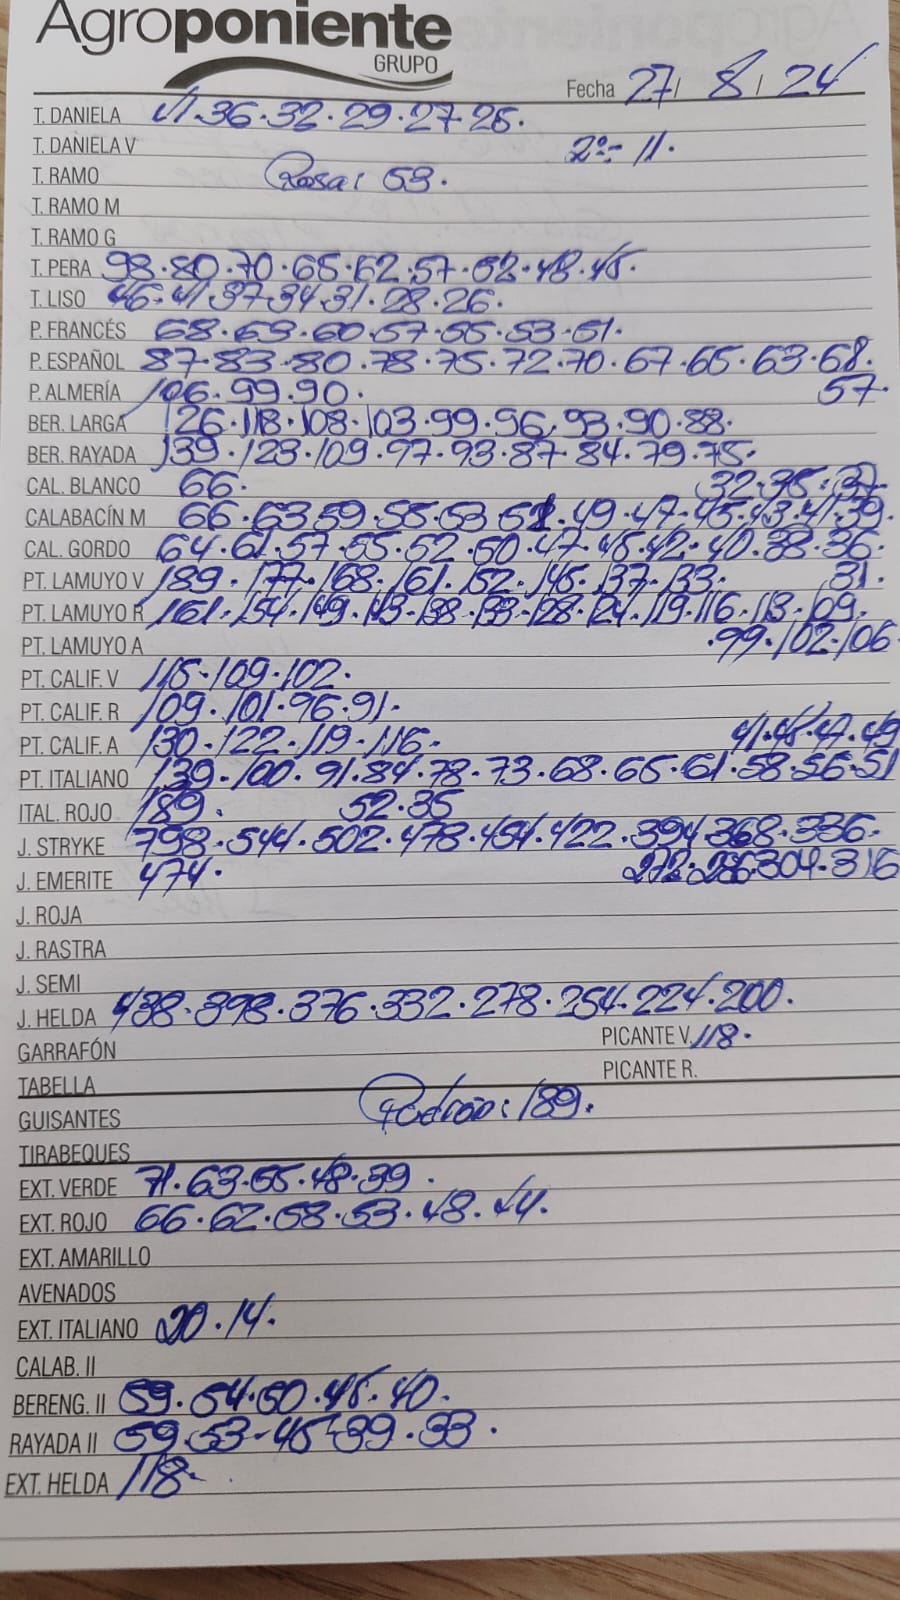 Agroponiente
GRUPO
Fecha 27/ 8/ 24
T. DANIELA 41.36.32.29.27.25.
T. DANIELA V 2ª- 11.
T. RAMO Rosa: 53.
T. RAMO M
T. RAMO G
T. PERA 98.80.70.65.62.57.52.48.45.
T. LISO 46.41.37.34.31.28.26.
P. FRANCÉS 68.63.60.57.55.53.51.
P. ESPAÑOL 87.83.80.78.75.72.70.67.65.63.68.
57.
P. ALMERÍA 106.99.90.
BER. LARGA 126.118.108.103.99.96.93.90.88.
BER. RAYADA 139.123.109.97.93.87.84.79.75.
CAL. BLANCO 66.
32.35.37.
CALABACÍN M 66.63.59.55.53.51.49.47.45.43.41.39.
CAL. GORDO 64.61.57.55.52.50.47.45.42.40.38.36.
31.
PT. LAMUYO V 189.177.168.161.152.145.137.133.
PT. LAMUYO R 161.154.149.143.138.133.128.124.119.116.113.109.
.99.102.106
PT. LAMUYO A
PT. CALIF. V 115.109.102.
PT. CALIF. R 109.101.96.91.
PT. CALIF. A 130.122.119.116.
41.45.47.49
PT. ITALIANO 139.100.91.84.78.73.68.65.61.58.56.51
ITAL. ROJO 189. 52.35
J. STRYKE 798.544.502.478.454.422.394.368.336.
272.286.304.316
J. EMERITE 474.
J. ROJA
J. RASTRA
J. SEMI
J. HELDA 438.398.376.332.278.254.224.200.
GARRAFÓN PICANTE V. 118.
TABELLA PICANTE R.
GUISANTES Padrón: 189.
TIRABEQUES
EXT. VERDE 71.63.55.48.39.
EXT. ROJO 66.62.58.53.48.44.
EXT. AMARILLO
AVENADOS
EXT. ITALIANO 20.14.
CALAB. II
BERENG. II 59.54.50.45.40.
RAYADA II 59.53.45.39.33.
EXT. HELDA 118.